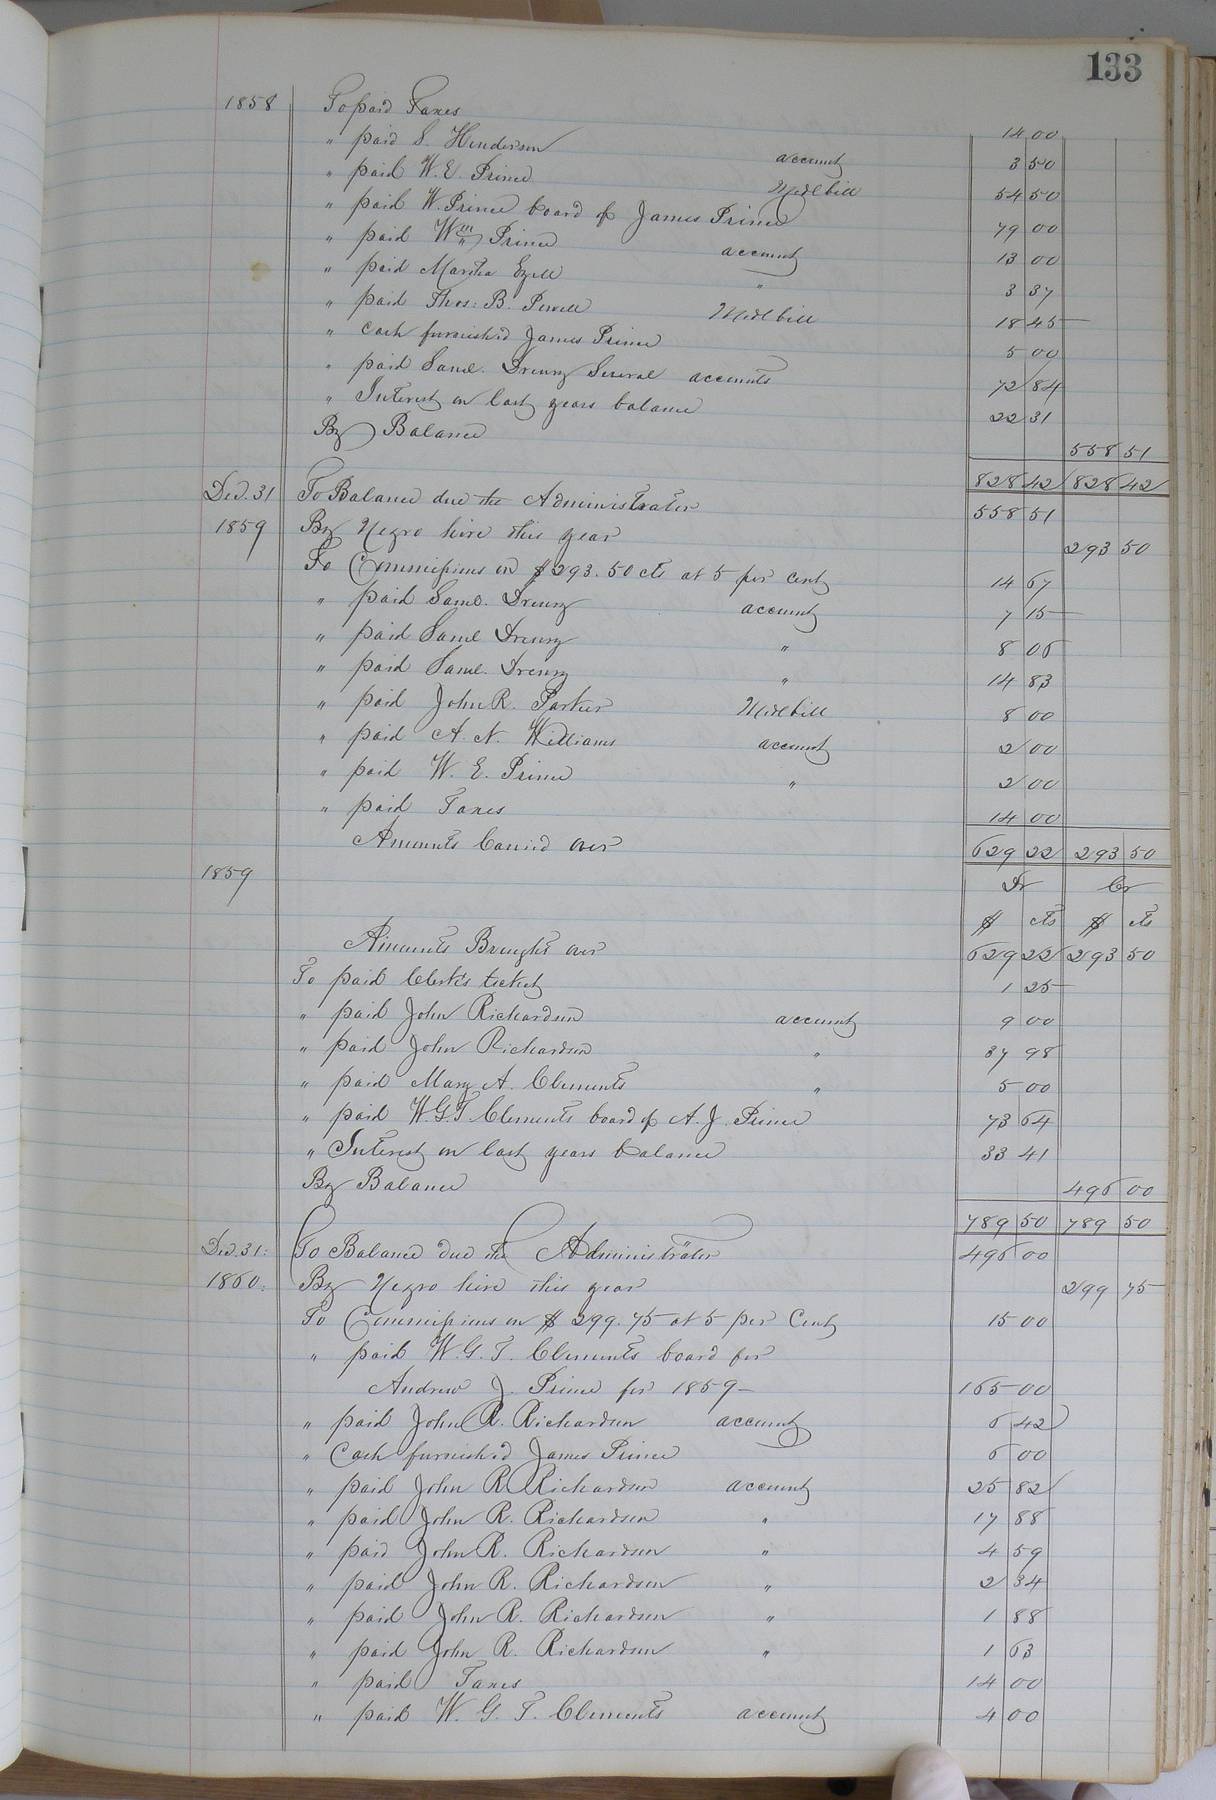 133
1858 To paid Taxes 14 00
" paid S. Henderson account 3 50
" paid W. E. Prince Medl bill 54 50
" paid W. Prince board of James Prince 79 00
" paid Wm Prince account 13 00
" paid Martha Ezell " 3 37
" paid Thos: B. Powell Medl bill 18 45
" Cash furnish'd James Prince 5 00
" paid Saml. Drewry Several accounts 72 84
" Interest on last years balance 22 31
By Balance 558 51
828 42 828 42
Decr. 31 To Balance due the Administrator 558 51
1859 By Negro hire this year 293 50
To Commissions on $293.50 cts at 5 per cent 14 67
" paid Saml. Drewry account 7 15
" paid Saml Drewry " 8 06
" paid Saml. Drewry " 14 83
" paid John R. Parker Medl bill 8 00
" paid A. N. Williams account 2 00
" paid W. E. Prince " 2 00
" paid Taxes 14 00
Amounts Carried over 629 22 293 50
1859 Dr Cr
$ cts $ cts
Amounts Brought over 629 22 293 50
To paid Clerk's ticket 1 25
" paid John Richardson account 9 00
" paid John Richardson " 37 98
" paid Mary A. Clements " 5 00
" paid W. G. T. Clements board of A. J. Prince 73 64
" Interest on last years balance 33 41
By Balance 496 00
789 50 789 50
Decr. 31: To Balance due the Administrator 496 00
1860: By Negro hire this year 299 75
To Commissions on $299.75 at 5 per Cent 15 00
" paid W. G. T. Clements board for
Andrew J. Prince for 1859— 165 00
" paid John R. Richardson account 6 42
" Cash furnish'd James Prince 6 00
" paid John R. Richardson account 25 82
" paid John R. Richardson " 17 88
" paid John R. Richardson " 4 59
" paid John R. Richardson " 2 34
" paid John R. Richardson " 1 88
" paid John R. Richardson " 1 63
" paid Taxes 14 00
" paid W. G. T. Clements account 4 00